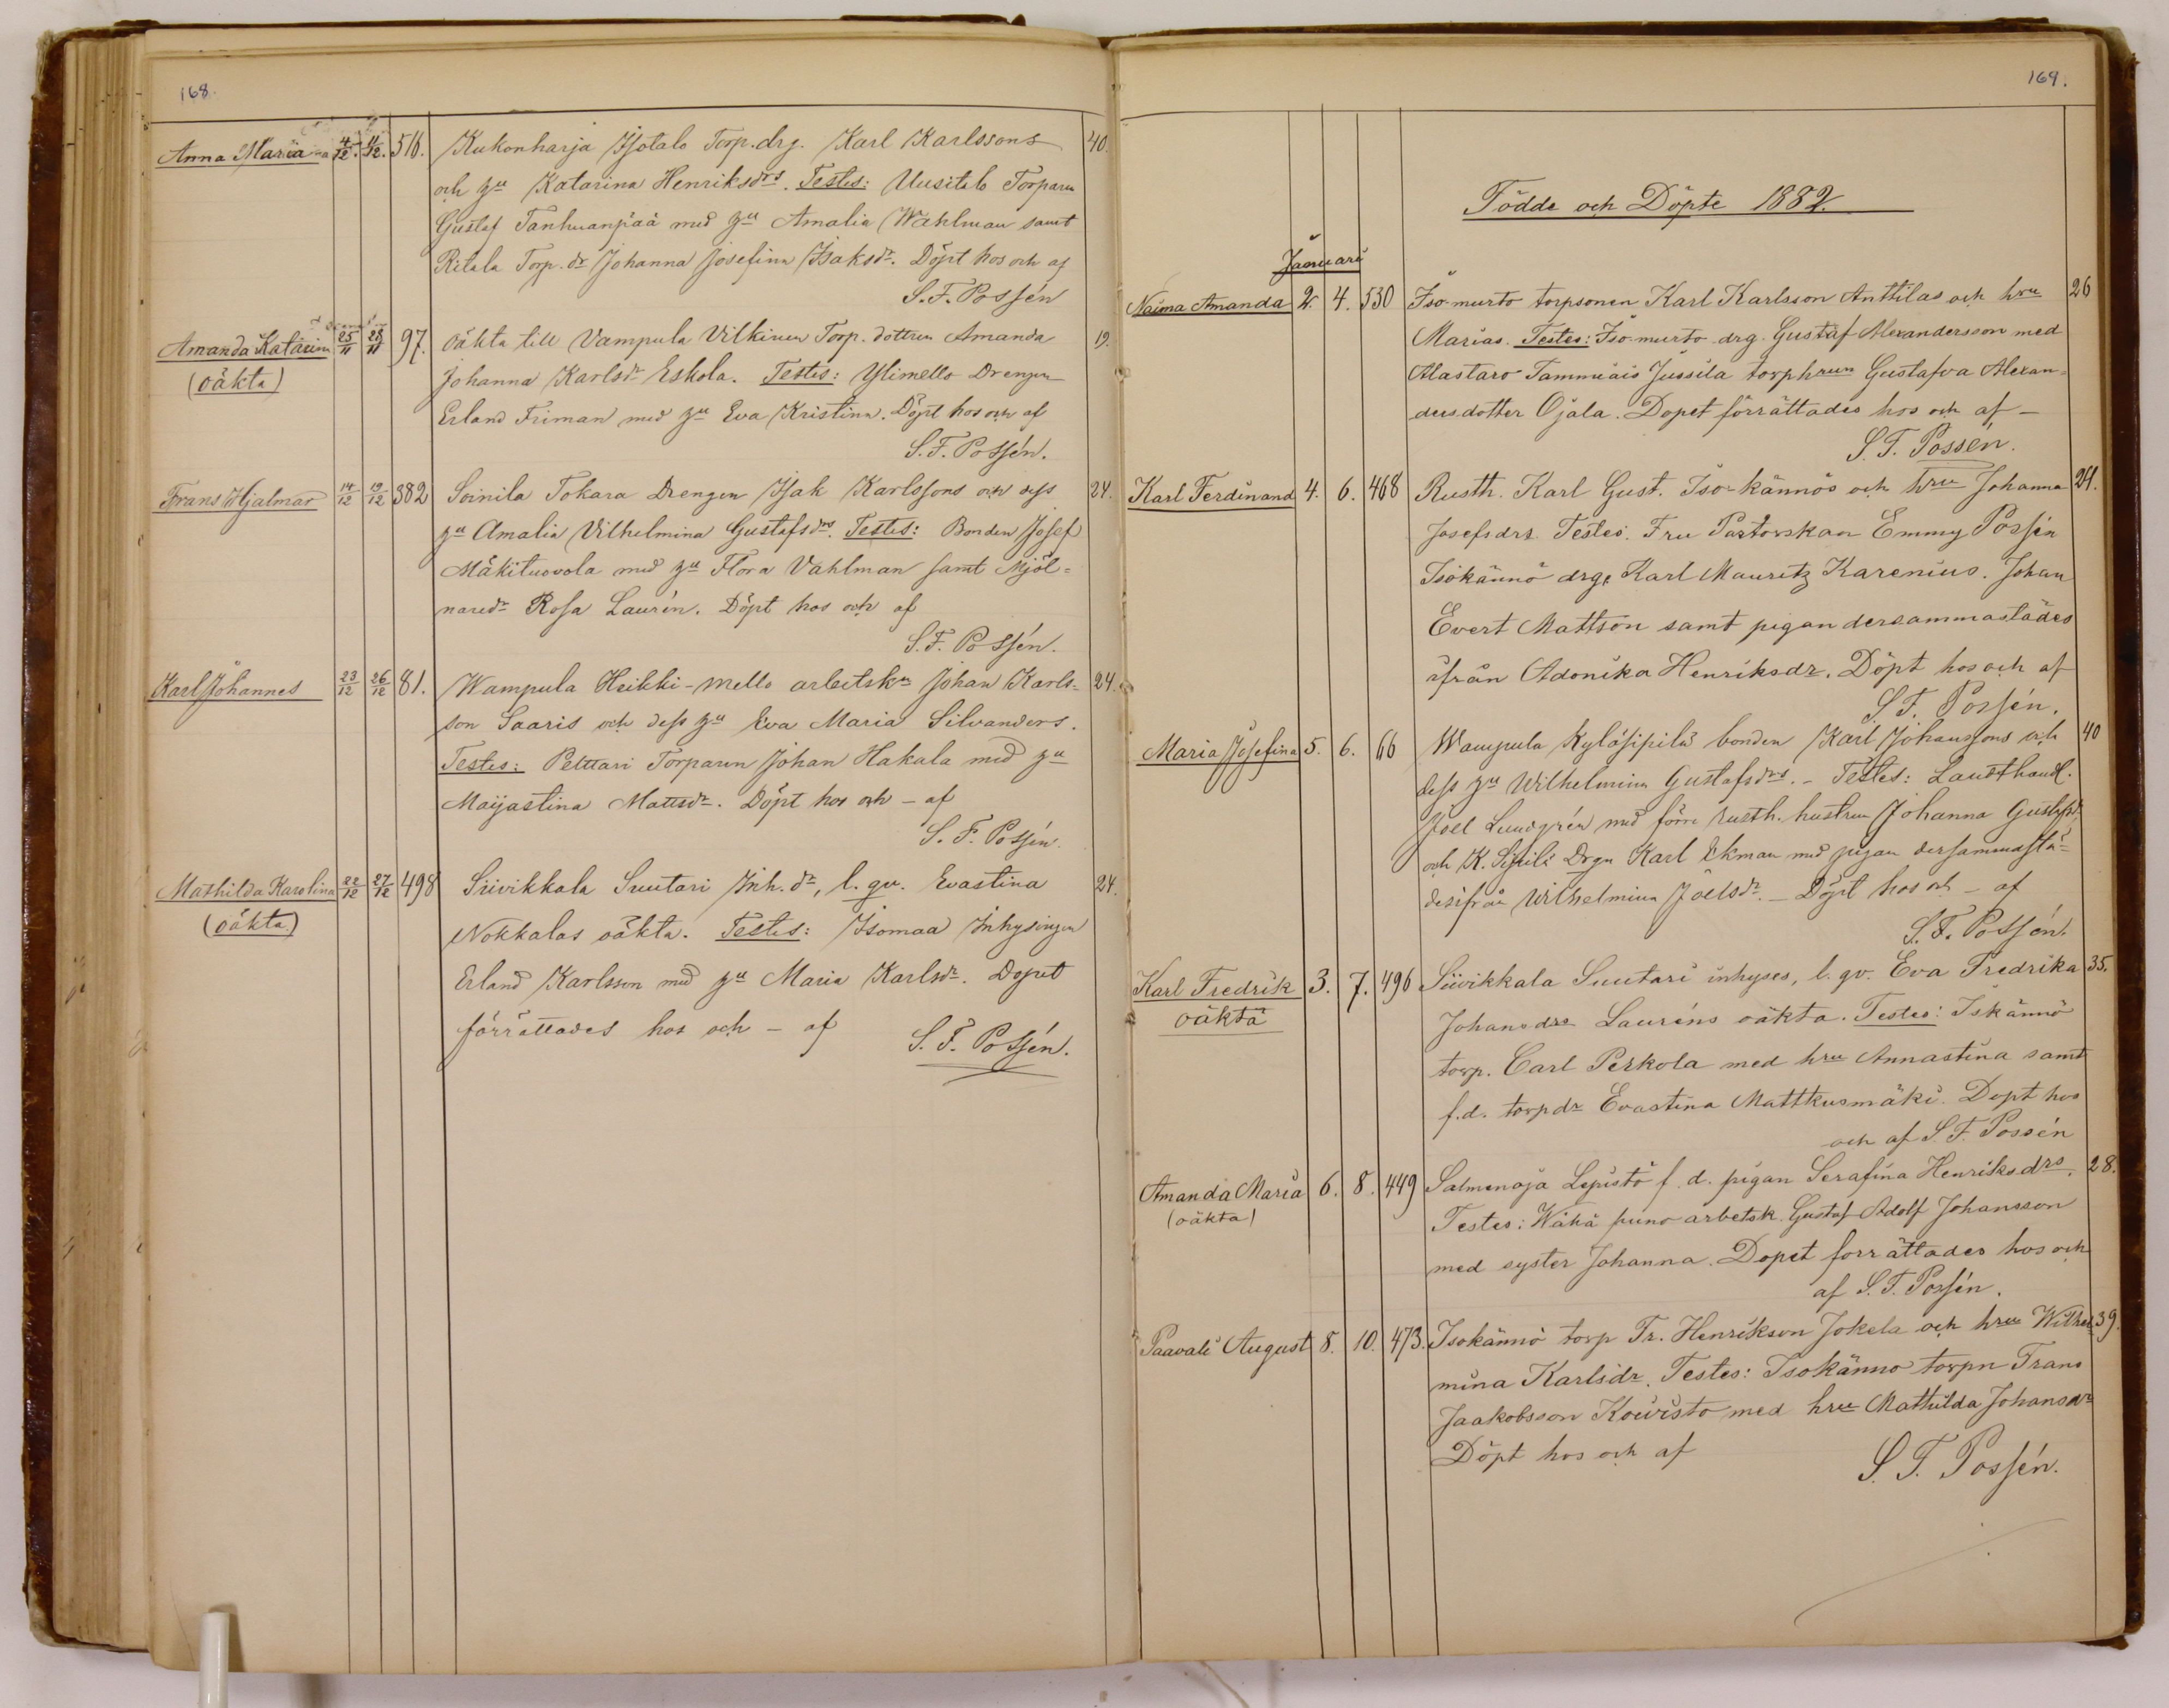 168.
Anna Maria 4/12. 11/12. 516. Kukonharja Isotalo Torp.drg. Karl Karlssons 40.
och hu Katarina Henriksdrs. Testes: Uusitalo Torparen
Gustaf Tanhuanpää med hu Amalia Wahlman samt
Ritala Torp. dr Johanna Josefina Isaksdr. Döpt hos och af
S. F. Possén
Amanda Katarina 25/11 28/11 97. oäkta till Vampula Vilkinen Torp. dottren Amanda 19.
(oäkta)
Johanna Karlsdr Eskola. Testes: Ylimello Drengen
Erland Friman med hu Eva Kristina. Döpt hos och af
S. F. Possén.
Frans Hjalmar 14/12 19/12 382 Soinila Tokara Drengen Isak Karlssons och dess 24.
hu Amalia Vilhelmina Gustafsdrs. Testes: Bonden Josef
Mäkituovola med hu Flora Vahlman samt Mjöl=
naredr Rosa Laurén. Döpt hos och af
S. F. Possén.
Karl Johannes 23/12 26/12 81. Wampula Heikki-Mello arbetskn Johan Karls= 24.
son Saaris och dess hu Eva Maria Silvanders.
Testes: Pelttari Torparen Johan Hakala med hu
Maijastina Mattsdr. Döpt hos och - af
S. F. Possén.
Mathilda Karolina 22/12 27/12 498 Siivikkala Suutari Inh. dr, l. qv. Evastina 24.
(oäkta)
Nokkalas oäkta. Testes: Isomaa Inhysingen
Erland Karlsson med hu Maria Karlsdr. Dopet
förrättades hos och - af
S. F. Possén.
169.
Födde och Döpte 1882.
Januari
Naima Amanda 2. 4. 530 Iso-murto torpsonen Karl Karlsson Anttilas och hru 26
Marias. Testes: Iso-murto drg. Gustaf Alexandersson med
Alastaro Tammiais Jussila torphrun Gustafva Alexan=
dersdotter Ojala. Dopet förrättades hos och af -
S. F. Possén.
Karl Ferdinand 4. 6. 468 Rusth. Karl Gust. Iso-kännös och hru Johanna 24.
Josefsdrs Testes. Fru Pastorskan Emmy Possén
Isokännö drg. Karl Mauritz Karenius. Johan
Evert Mattson samt pigan dersammastädes
ifrån Adonika Henriksdr. Döpt hos och af
S. F. Possén.
Maria Josefina 5. 6. 66 Wampula Kyläsipilä bonden Karl Johanssons och 40
dess hu Wilhelmina Gustafsdrs. - Testes: Landthandl.
Joel Lundgrén med förre rusth. hustrun Johanna Gustafsd.
och K. Sipilä Drgn Karl Ekman med pigan dersammastä=
desifrån Wilhelmina Joelsdr. - Döpt hos och - af
S. F. Possén.
Karl Fredrik 3. 7. 496 Siivikkala Suutari inhyses, l. qv. Eva Fredrika 35.
oäkta
Johansdrs Lauréns oäkta. Testes: Iskännö
torp. Carl Perkola med hru Annastina samt
f.d. torpdr Evastina Mattkusmäki. Dopt hos
och af S. F. Possén
Amanda Maria 6. 8. 449 Salmenoja Lepistö f. d. pigan Serafina Henriksdrs. 28.
(oäkta)
Testes: Wähä puno arbetsk. Gustaf Adolf Johansson
med syster Johanna. Dopet forrättades hos och
af S. F. Possén.
Paavali August 8. 10. 473. Isokännö torp Fr. Henrikson Jokela och hru Wilhel= 39.
mina Karlsdr. Testes: Isokänno torpn Frans
Jaakobsson Koivisto med hru Mathilda Johansdr
Döpt hos och af
S. F. Possén.